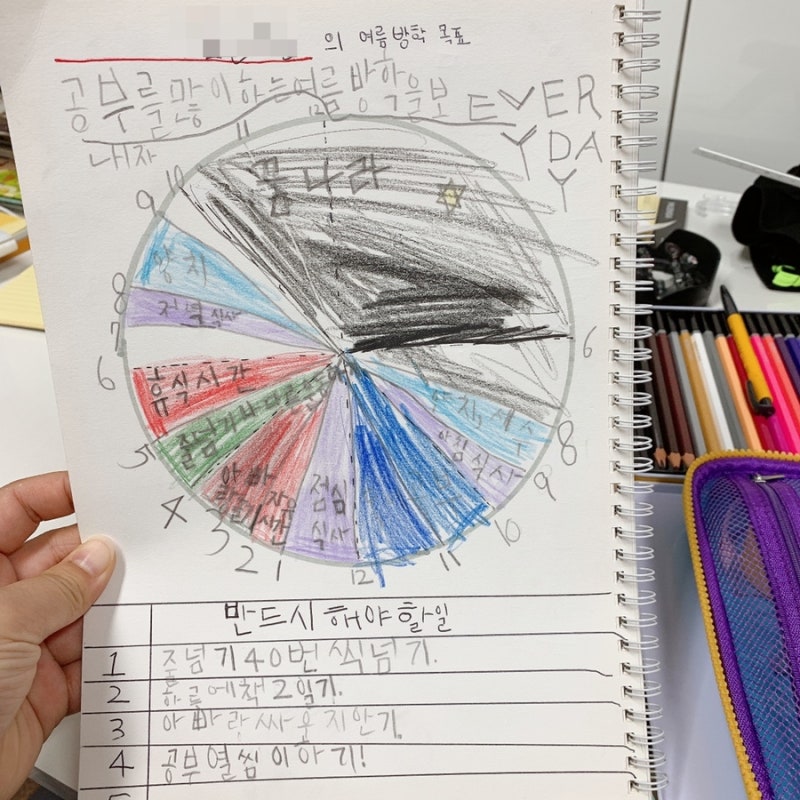 의 여름방학 목표
공부를 많이 하는 여름 방학을 보
내자
EVERY
DAY
꿈나라
12
11
10
9
양치
8
저녁식사
7
6
휴식시간
5
줄넘기
4
3
2
1
점심
식사
12
11
10
아침
식사
9
양치, 세수
8
6
반드시 해야 할일
1 줄넘기 40번씩 넘기.
2 하루에 책 2 읽기.
3 아빠랑 싸우지 안기.
4 공부 열씸이 하기!